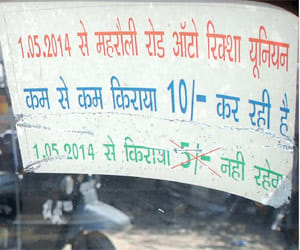 1.05.2014 से महरौली रोड ऑटो रिक्शा यूनियन
कम से कम किराया 10/- कर रही है
1.05.2014 से किराया 5/- नही रहेगा